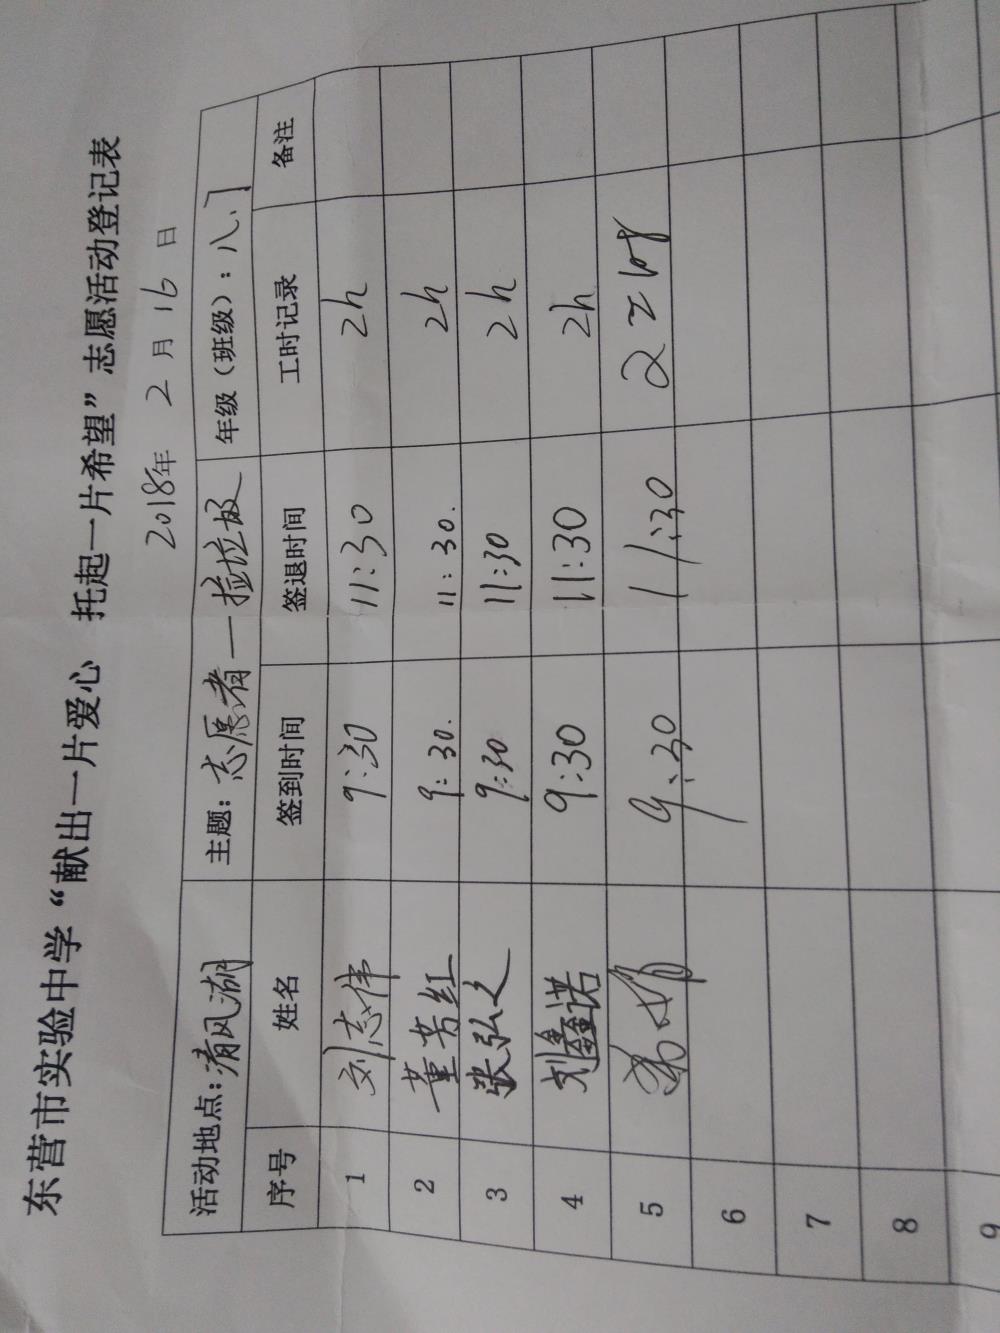 东营市实验中学“献出一片爱心 托起一片希望”志愿活动登记表
2018年 2 月 16 日
活动地点:清风湖 主题:志愿者一捡垃圾 年级(班级):八.7
序号 姓名 签到时间 签退时间 工时记录 备注
1 刘志伟 9:30 11:30 2h
2 董芳红 9:30. 11:30. 2h
3 张弘之 9:30 11:30 2h
4 刘鑫诺 9:30 11:30 2h
5 9:30 11:30
6
7
8
9